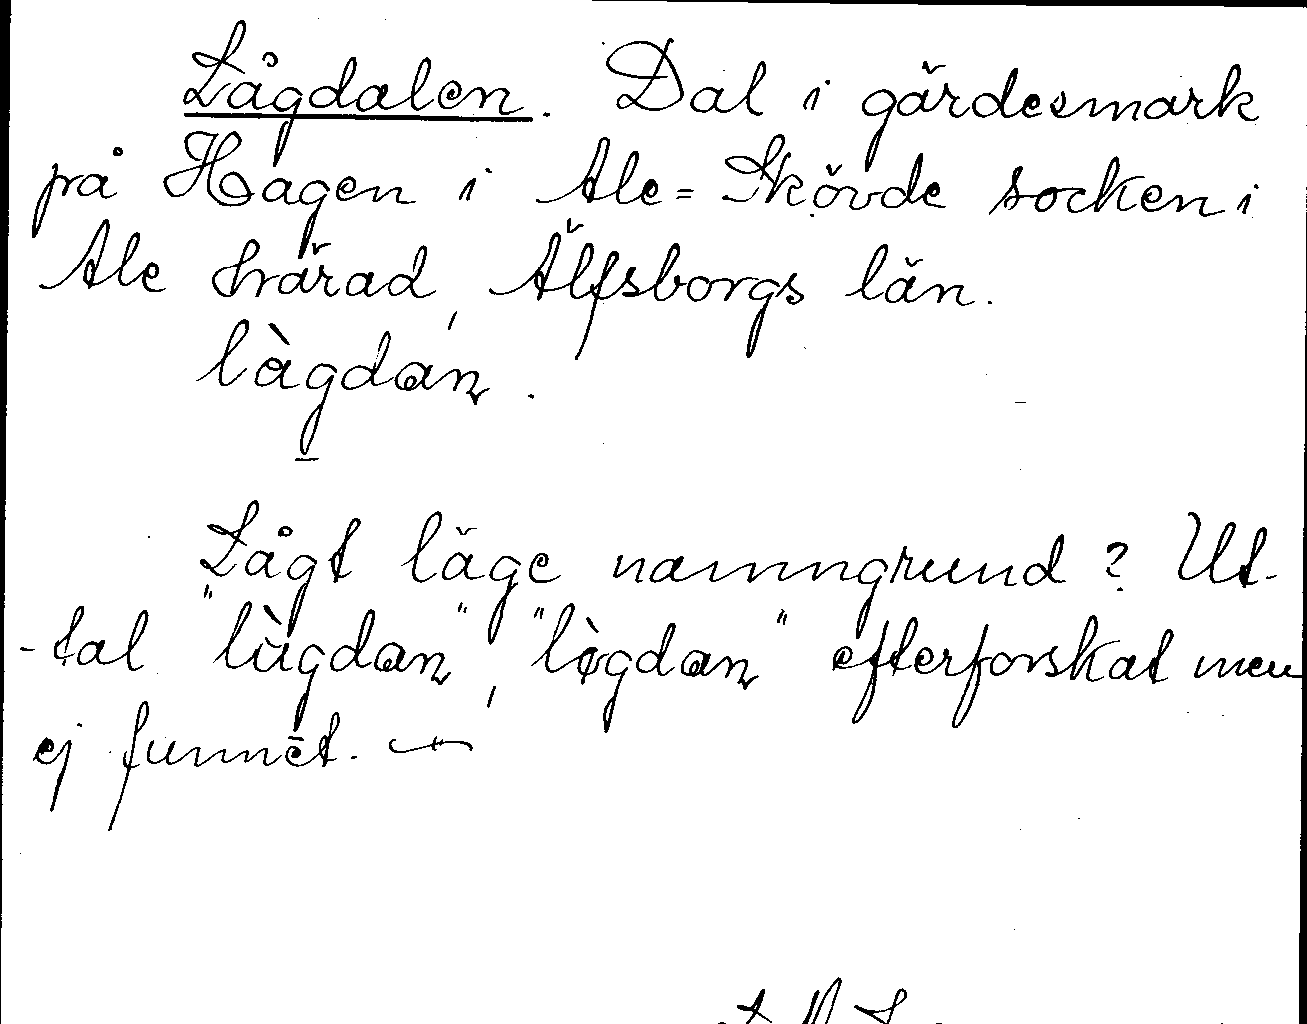 Lågdalen. Dal i gärdesmark
på Hagen i Ale=Skövde socken i
Ale härad, Älfsborgs län.
làgdan.
Lågt läge namngrund? Ut-
-tal "lùgdan", "lògdan" efterforskat men
ej funnet.